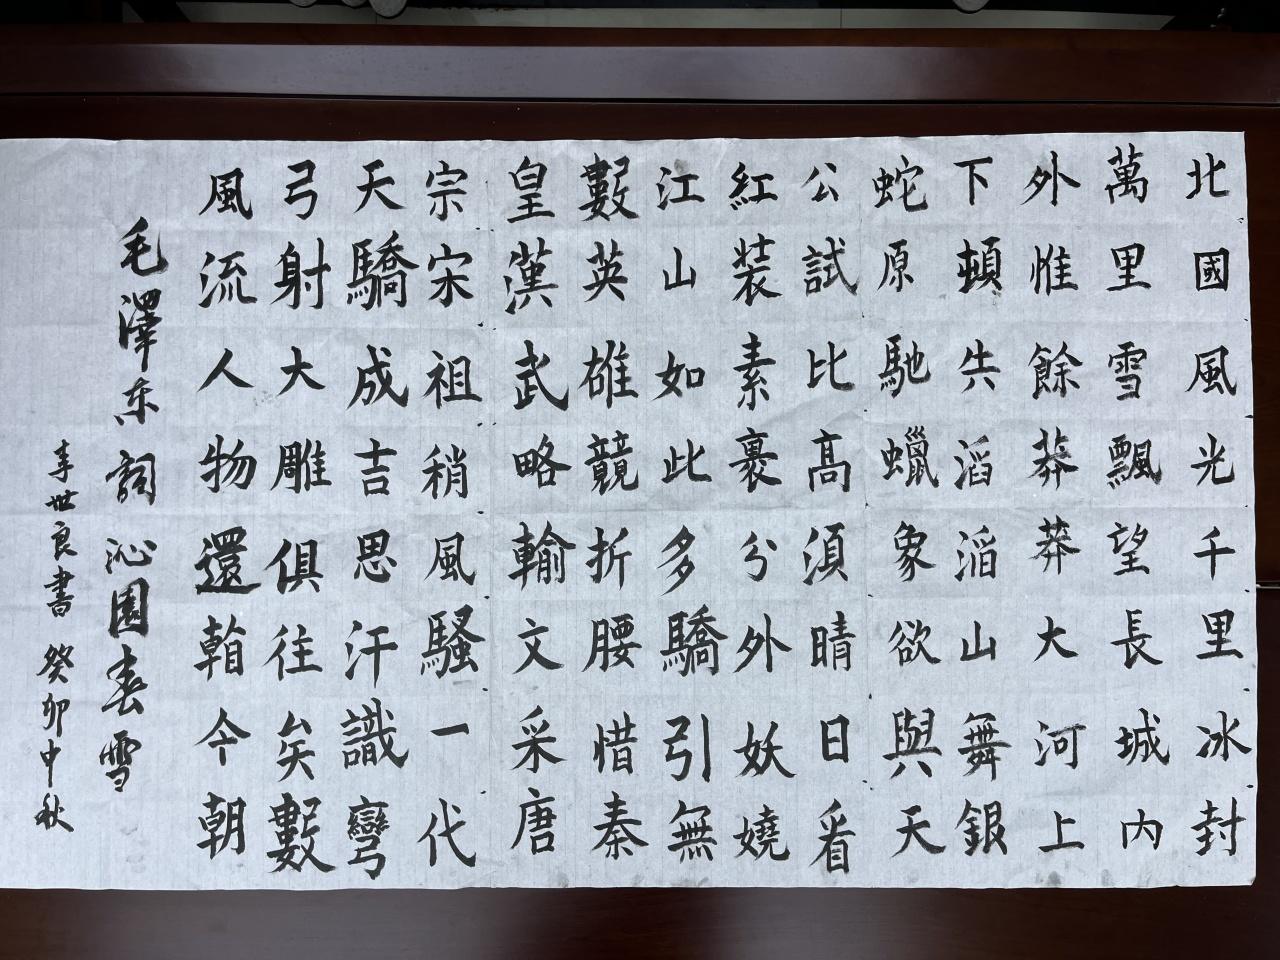 北國風光千里冰封
萬里雪飄望長城內
外惟餘莽莽大河上
下頓失滔滔山舞銀
蛇原馳蠟象欲與天
公試比高須晴日看
紅裝素裹分外妖嬈
江山如此多驕引無
數英雄競折腰惜秦
皇漢武略輸文采唐
宗宋祖稍風騷一代
天驕成吉思汗識彎
弓射大雕俱往矣數
風流人物還看今朝
毛澤东詞沁園春雪
李世良書癸卯中秋